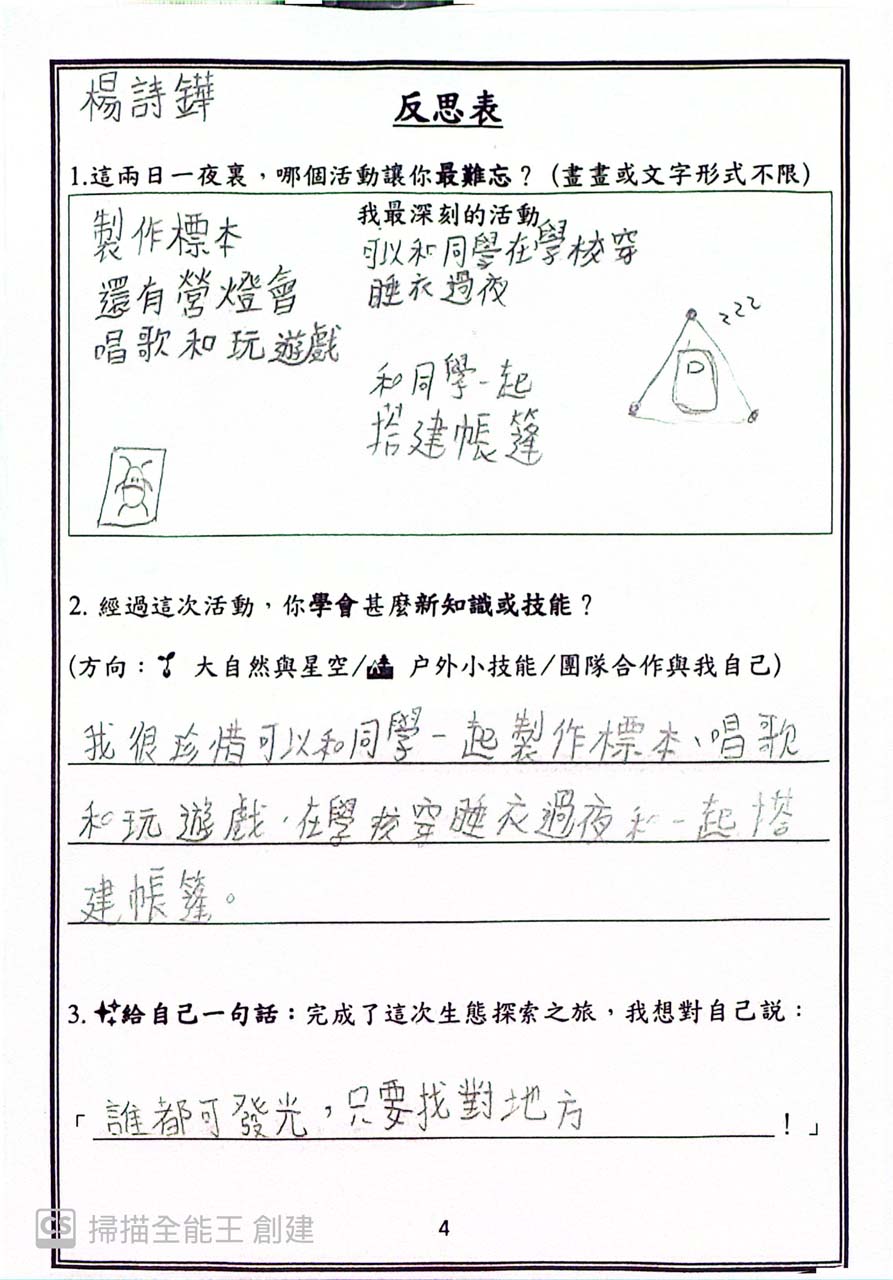 楊詩鏵
反思表
1.這兩日一夜裏，哪個活動讓你最難忘？（畫畫或文字形式不限）
製作標本
還有營燈會
唱歌和玩遊戲
我最深刻的活動
可以和同學在學校穿
睡衣過夜
和同學一起
搭建帳篷
zzz
2. 經過這次活動，你學會甚麼新知識或技能？
(方向： 大自然與星空/ 户外小技能/團隊合作與我自己)
我很珍惜可以和同學一起製作標本、唱歌
和玩遊戲、在學校穿睡衣過夜和一起搭
建帳篷。
3. 給自己一句話：完成了這次生態探索之旅，我想對自己説：
「誰都可發光，只要找對地方！」
CS 掃描全能王 創建
4